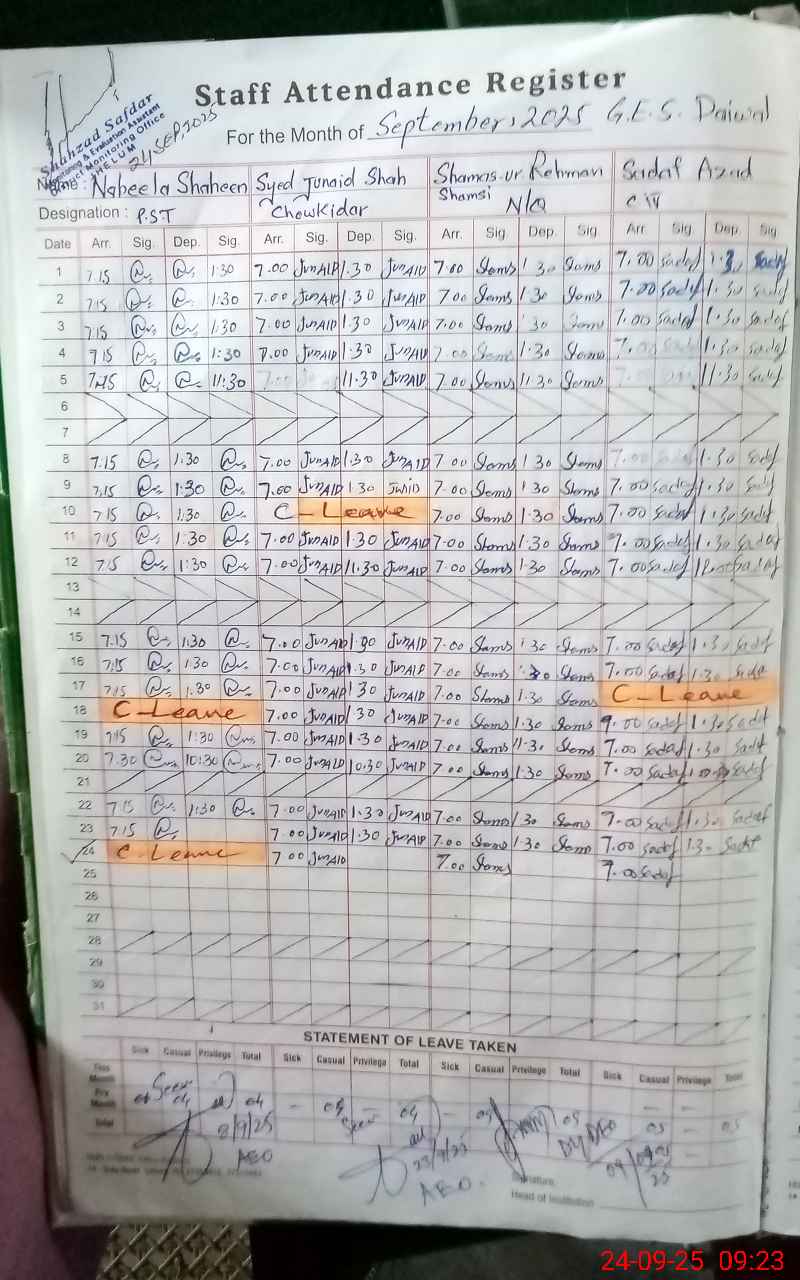 Staff Attendance Register
For the Month of September, 2025 G.E.S. Daiwal
Shahzad Safdar
Monitoring & Evaluation Assistant
District Monitoring Office
JHELUM
24, SEP, 2025
Name : Nabeela Shaheen Syed Junaid Shah Shams-ur-Rehman Shamsi Sadaf Azad
Designation : P.ST Chowkidar N/Q
Date Arr. Sig. Dep. Sig. Arr. Sig. Dep. Sig. Arr. Sig. Dep. Sig Arr. Sig Dep. Sig.
1 7.15 1:30 7.00 JunAID 1.30 JunAID 7.00 Shams 1 30 Shams 7.00 sadaf 1.30 sadaf
2 7.15 1:30 7.00 JunAID 1.30 JunAID 7 00 Shams 1 30 Shams 7.00 sadaf 1.30 sadaf
3 7.15 1:30 7.00 JunAID 1.30 JunAID 7.00 Shams 30 Shams 7.00 sadaf 1.30 sadaf
4 7.15 1:30 7.00 JunAID 1.30 JunAID 7.00 Shams 1.30 Shams 7.00 sadaf 1.30 sadaf
5 7.15 11:30 7.00 11.30 JunAID 7.00 Shams 11.30 Shams 11.30 sadaf
6
7
8 7.15 1:30 7.00 JunAID 1.30 JunAID 7.00 Shams 1 30 Shams 7.00 sadaf 1.30 sadaf
9 7.15 1:30 7.00 JunAID 1.30 Junid 7.00 Shams 1 30 Shams 7.00 sadaf 1.30 sadaf
10 7.15 1:30 C-Leave 7.00 Shams 1.30 Shams 7.00 sadaf 1.30 sadaf
11 7.15 1:30 7.00 JunAID 1.30 JunAID 7.00 Shams 1.30 Shams 7.00 sadaf 1.30 sadaf
12 7.15 1:30 7.00 JunAID 11.30 JunAID 7.00 Shams 1.30 Shams 7.00 sadaf sadaf
13
14
15 7.15 1:30 7.00 JunAID 1.30 JunAID 7.00 Shams 1.30 Shams 7.00 sadaf 1.30 sadaf
16 7.15 1:30 7.00 JunAID 1.30 JunAID 7.00 Shams 30 Shams 7.00 sadaf 1.30 sada
17 7.15 1:30 7.00 JunAID 1 30 JunAID 7.00 Shams 1.30 Shams C-Leave
18 C-Leave 7.00 JunAID 1 30 JunAID 7.00 Shams 1.30 Shams 7.00 sadaf 1.30 sadaf
19 7.15 1:30 7.00 JunAID 1.30 JunAID 7.00 Shams 11.30 Shams 7.00 sadaf 1.30 sadaf
20 7.30 10:30 7.00 JunAID 10.30 JunAID 7.00 Shams 1.30 Shams 7.00 sadaf sadaf
21
22 7.15 1:30 7.00 JunAID 1.30 JunAID 7.00 Shams 1.30 Shams 7.00 sadaf 1.30 sadaf
23 7.15 7.00 JunAID 1.30 JunAID 7.00 Shams 1.30 Shams 7.00 sadaf 1.30 sadaf
24 C-Leave 7.00 JunAID 7.00 Shams 7.00 sadaf
25
26
27
28
29
30
31
STATEMENT OF LEAVE TAKEN
Sick Casual Privilege Total Sick Casual Privilege Total Sick Casual Privilege Total Sick Casual Privilege Total
This Month
Pre Month 04 04 - 04 04 - 05 05 - -
Total 05 - 05
8/9/25 AEO
23/9/25 AEO.
DY DEO
Signature
Head of Institution
24-09-25 09:23